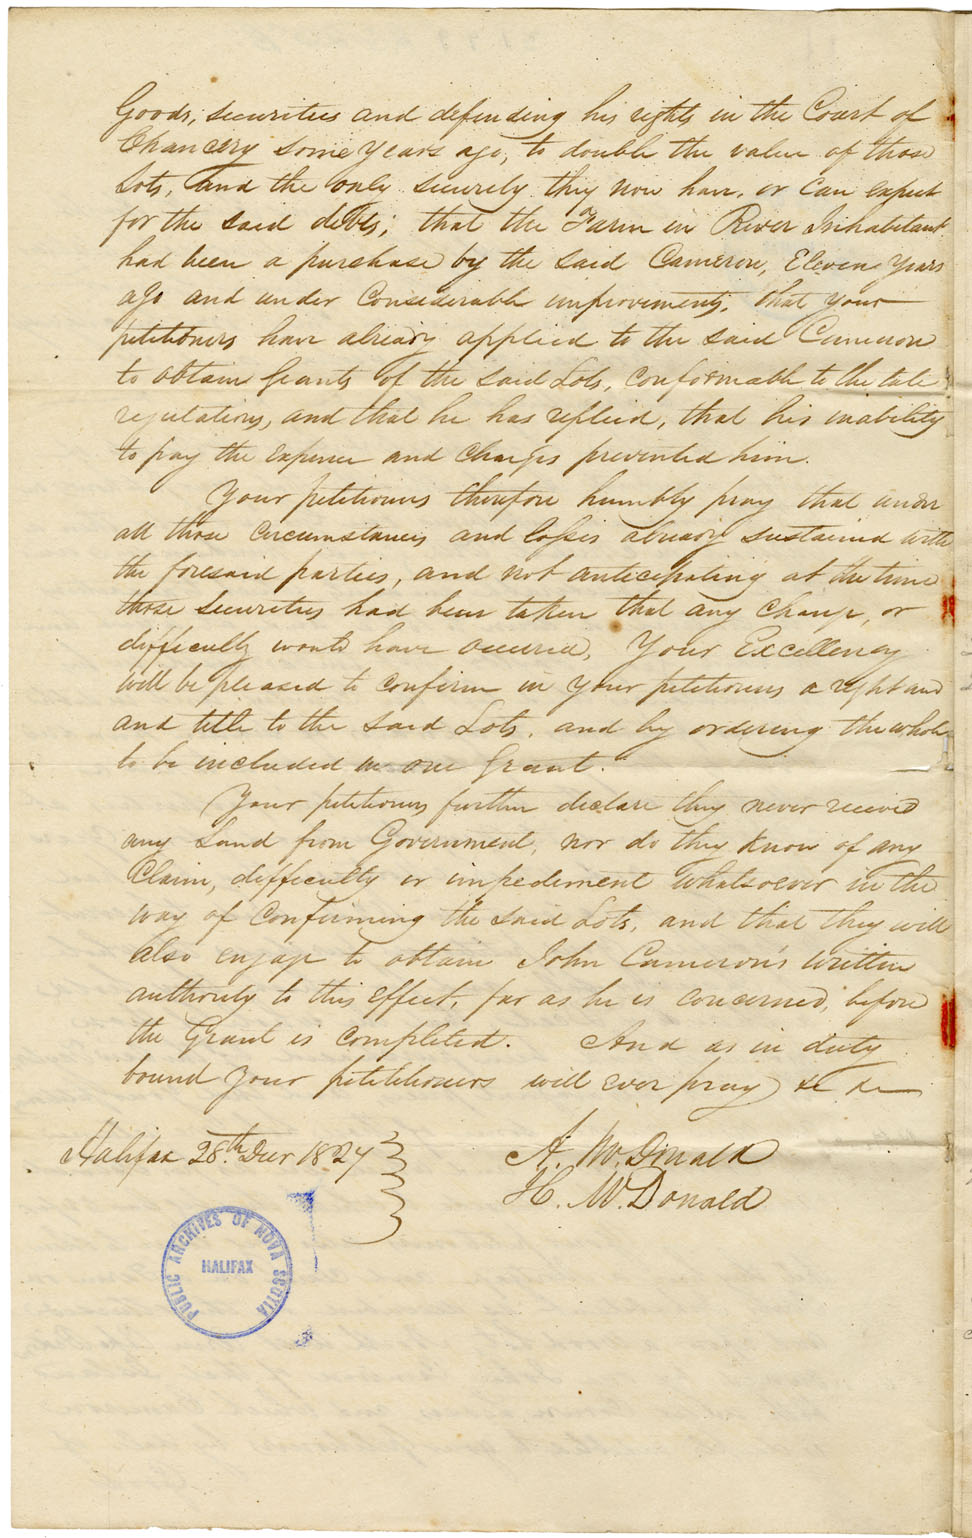 Goods, securities and defending his rights in the Court of
Chancery some years ago, to double the value of those
Lots, and the only security they now have, or can expect
for the said debts; that the Farm in River Inhabitant
had been a purchase by the said Cameron, Eleven Years
ago and under Considerable improvements, that your
petitioners have already applied to the said Cameron
to obtain Grants of the said Lots, conformable to the late
regulations, and that he has replied, that his inability
to pay the expence and charges prevented him.
Your petitioners therefore humbly pray that under
all those circumstances and losses already sustained with
the foresaid parties, and not anticipating at the time
those securities had been taken that any change, or
difficulty would have occured, Your Excellency
will be pleased to confirm in your petitioners a right and
and title to the said Lots, and by ordering the whole
to be included in one Grant.
Your petitioners further declare they never received
any Land from Government, nor do they know of any
Claim, difficulty or impediment whatsoever in the
way of confirming the said Lots, and that they will
also engage to obtain John Cameron's written
authority to this effect, far as he is concerned, before
the Grant is completed. And as in duty
bound your petitioners will ever pray &c &c
Halifax 28th. Decr 1827
A. McDonald
H. McDonald
PUBLIC ARCHIVES OF NOVA SCOTIA
HALIFAX